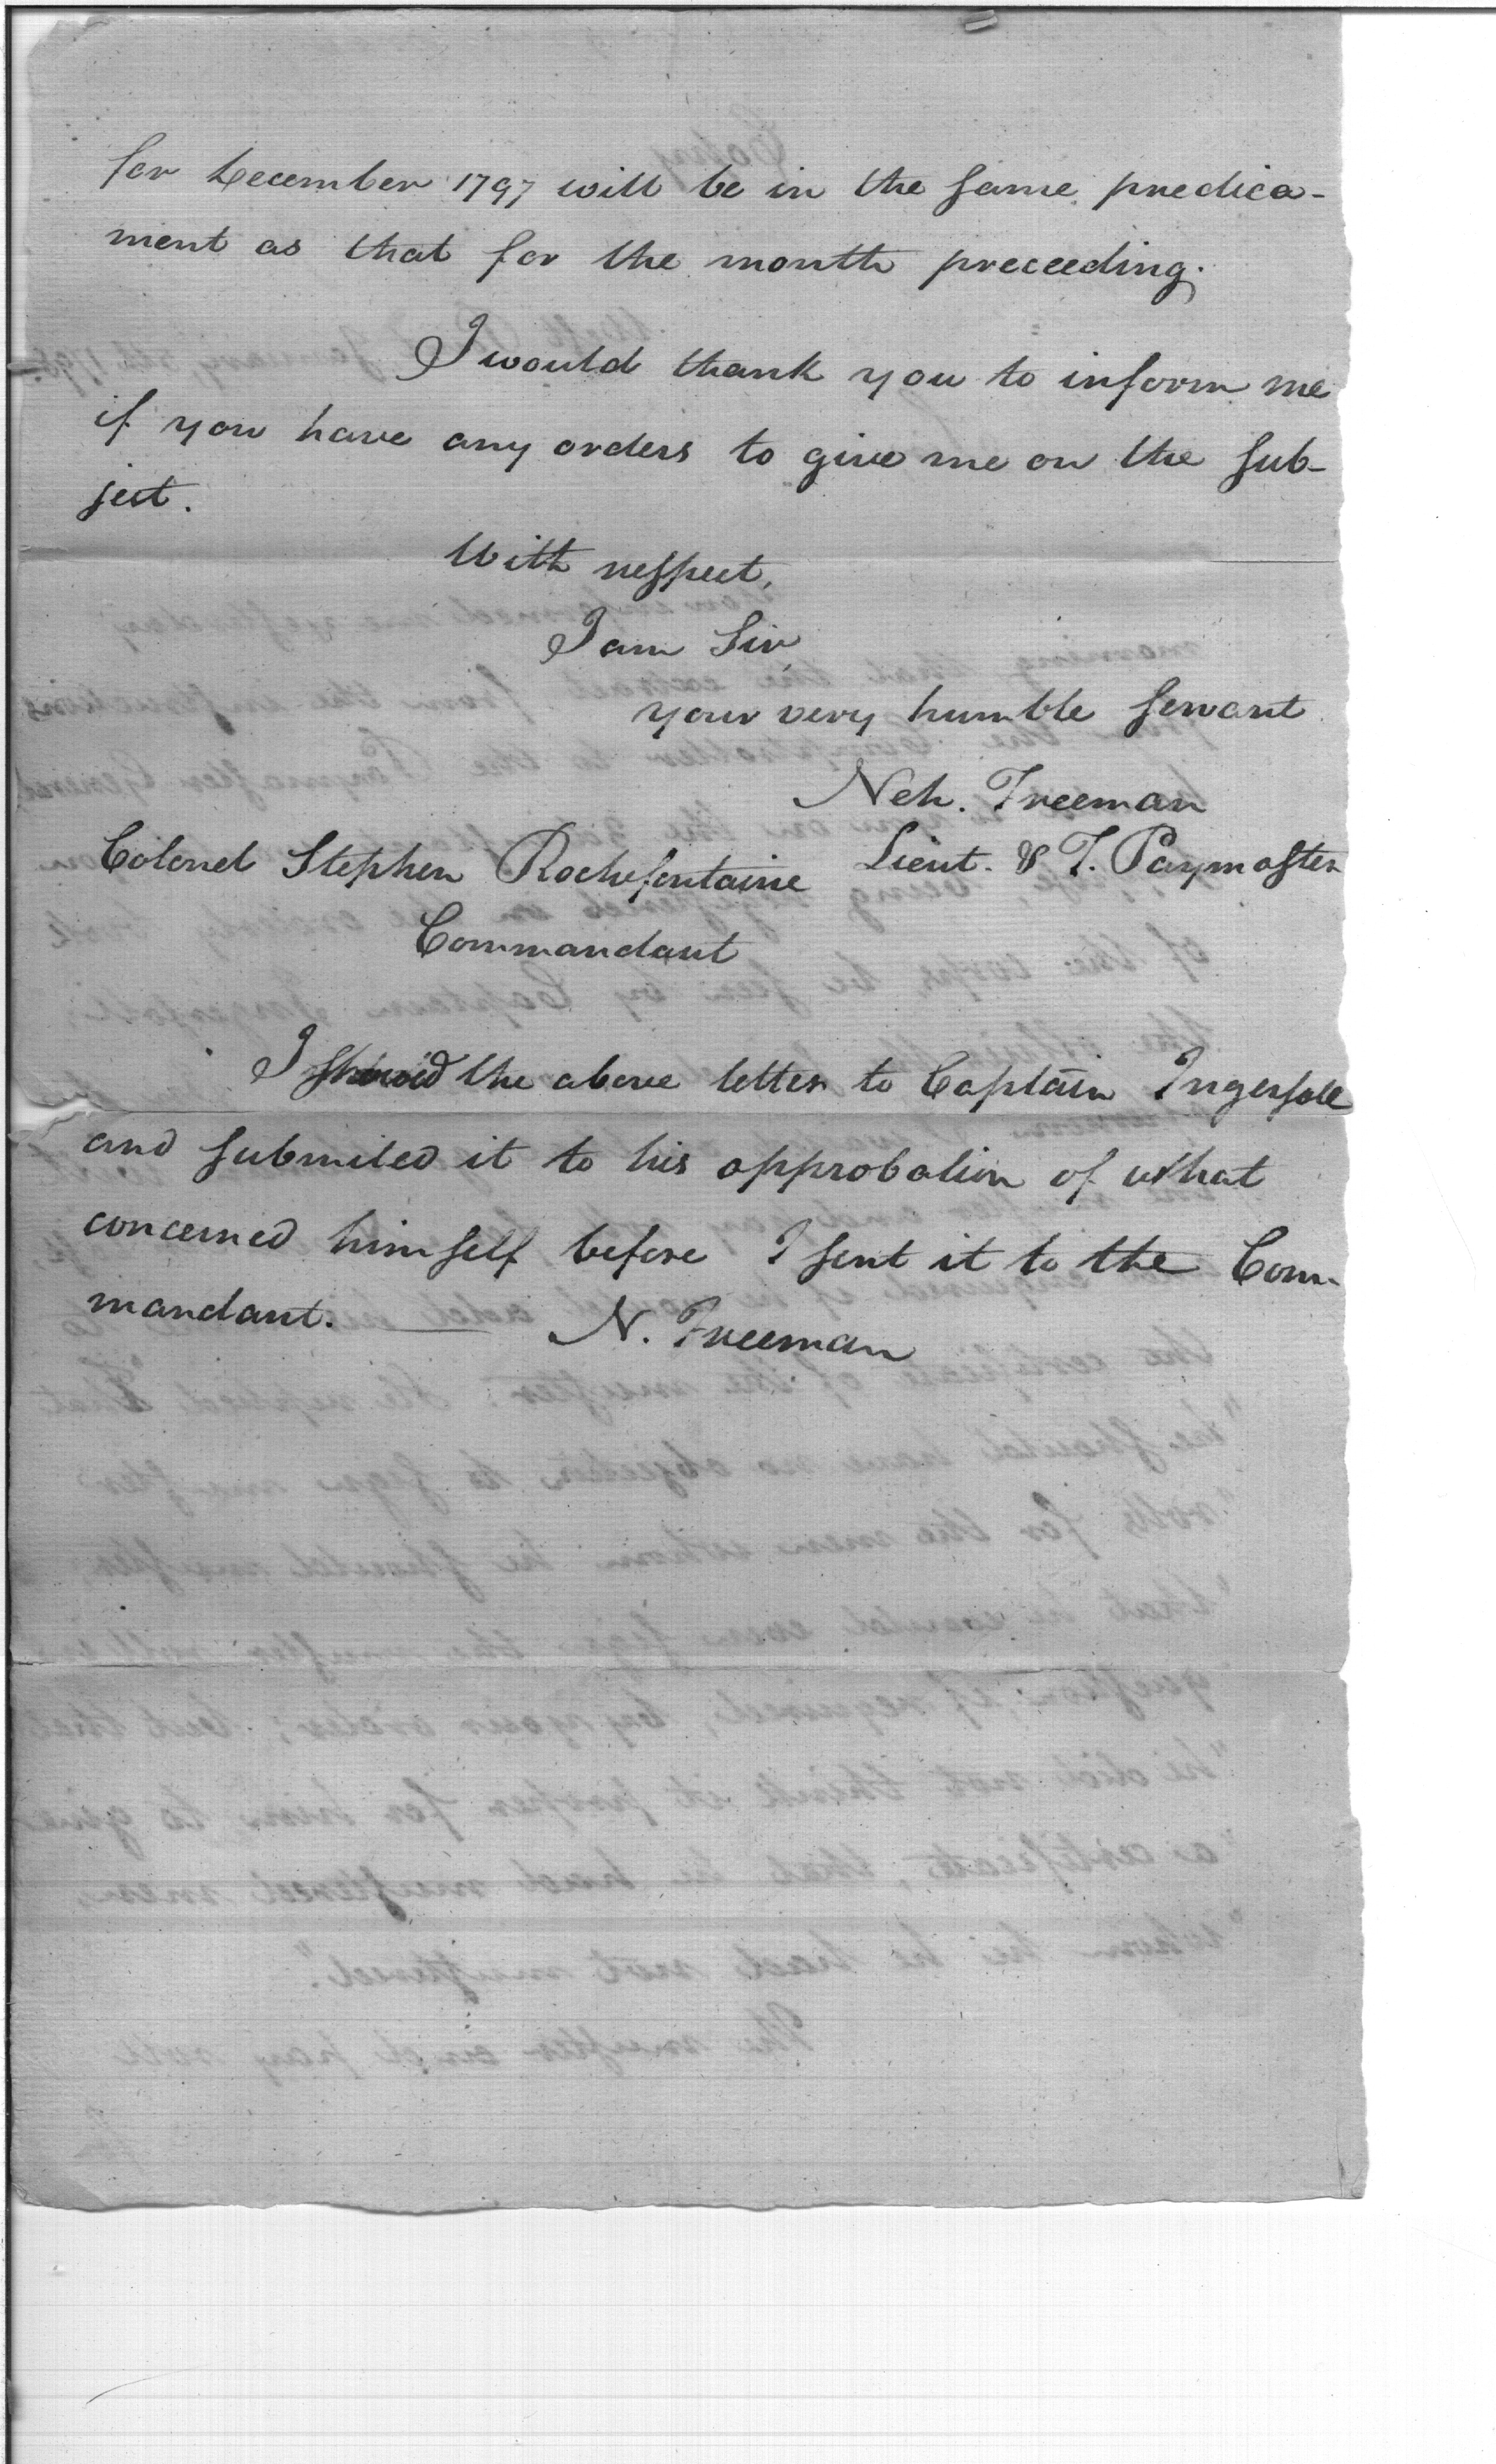 for December 1797 will be in the same predica-
ment as that for the month preceeding.
I would thank you to inform me
if you have any orders to give me on the sub-
ject.
With respect,
I am Sir
your very humble servant
Neh. Freeman
Lieut. & T. Paymaster
Colonel Stephen Rochefontaine
Commandant
I showed the above letter to Captain Ingersoll
and submited it to his approbation of what
concerned himself before I sent it to the Com-
mandant. — N. Freeman